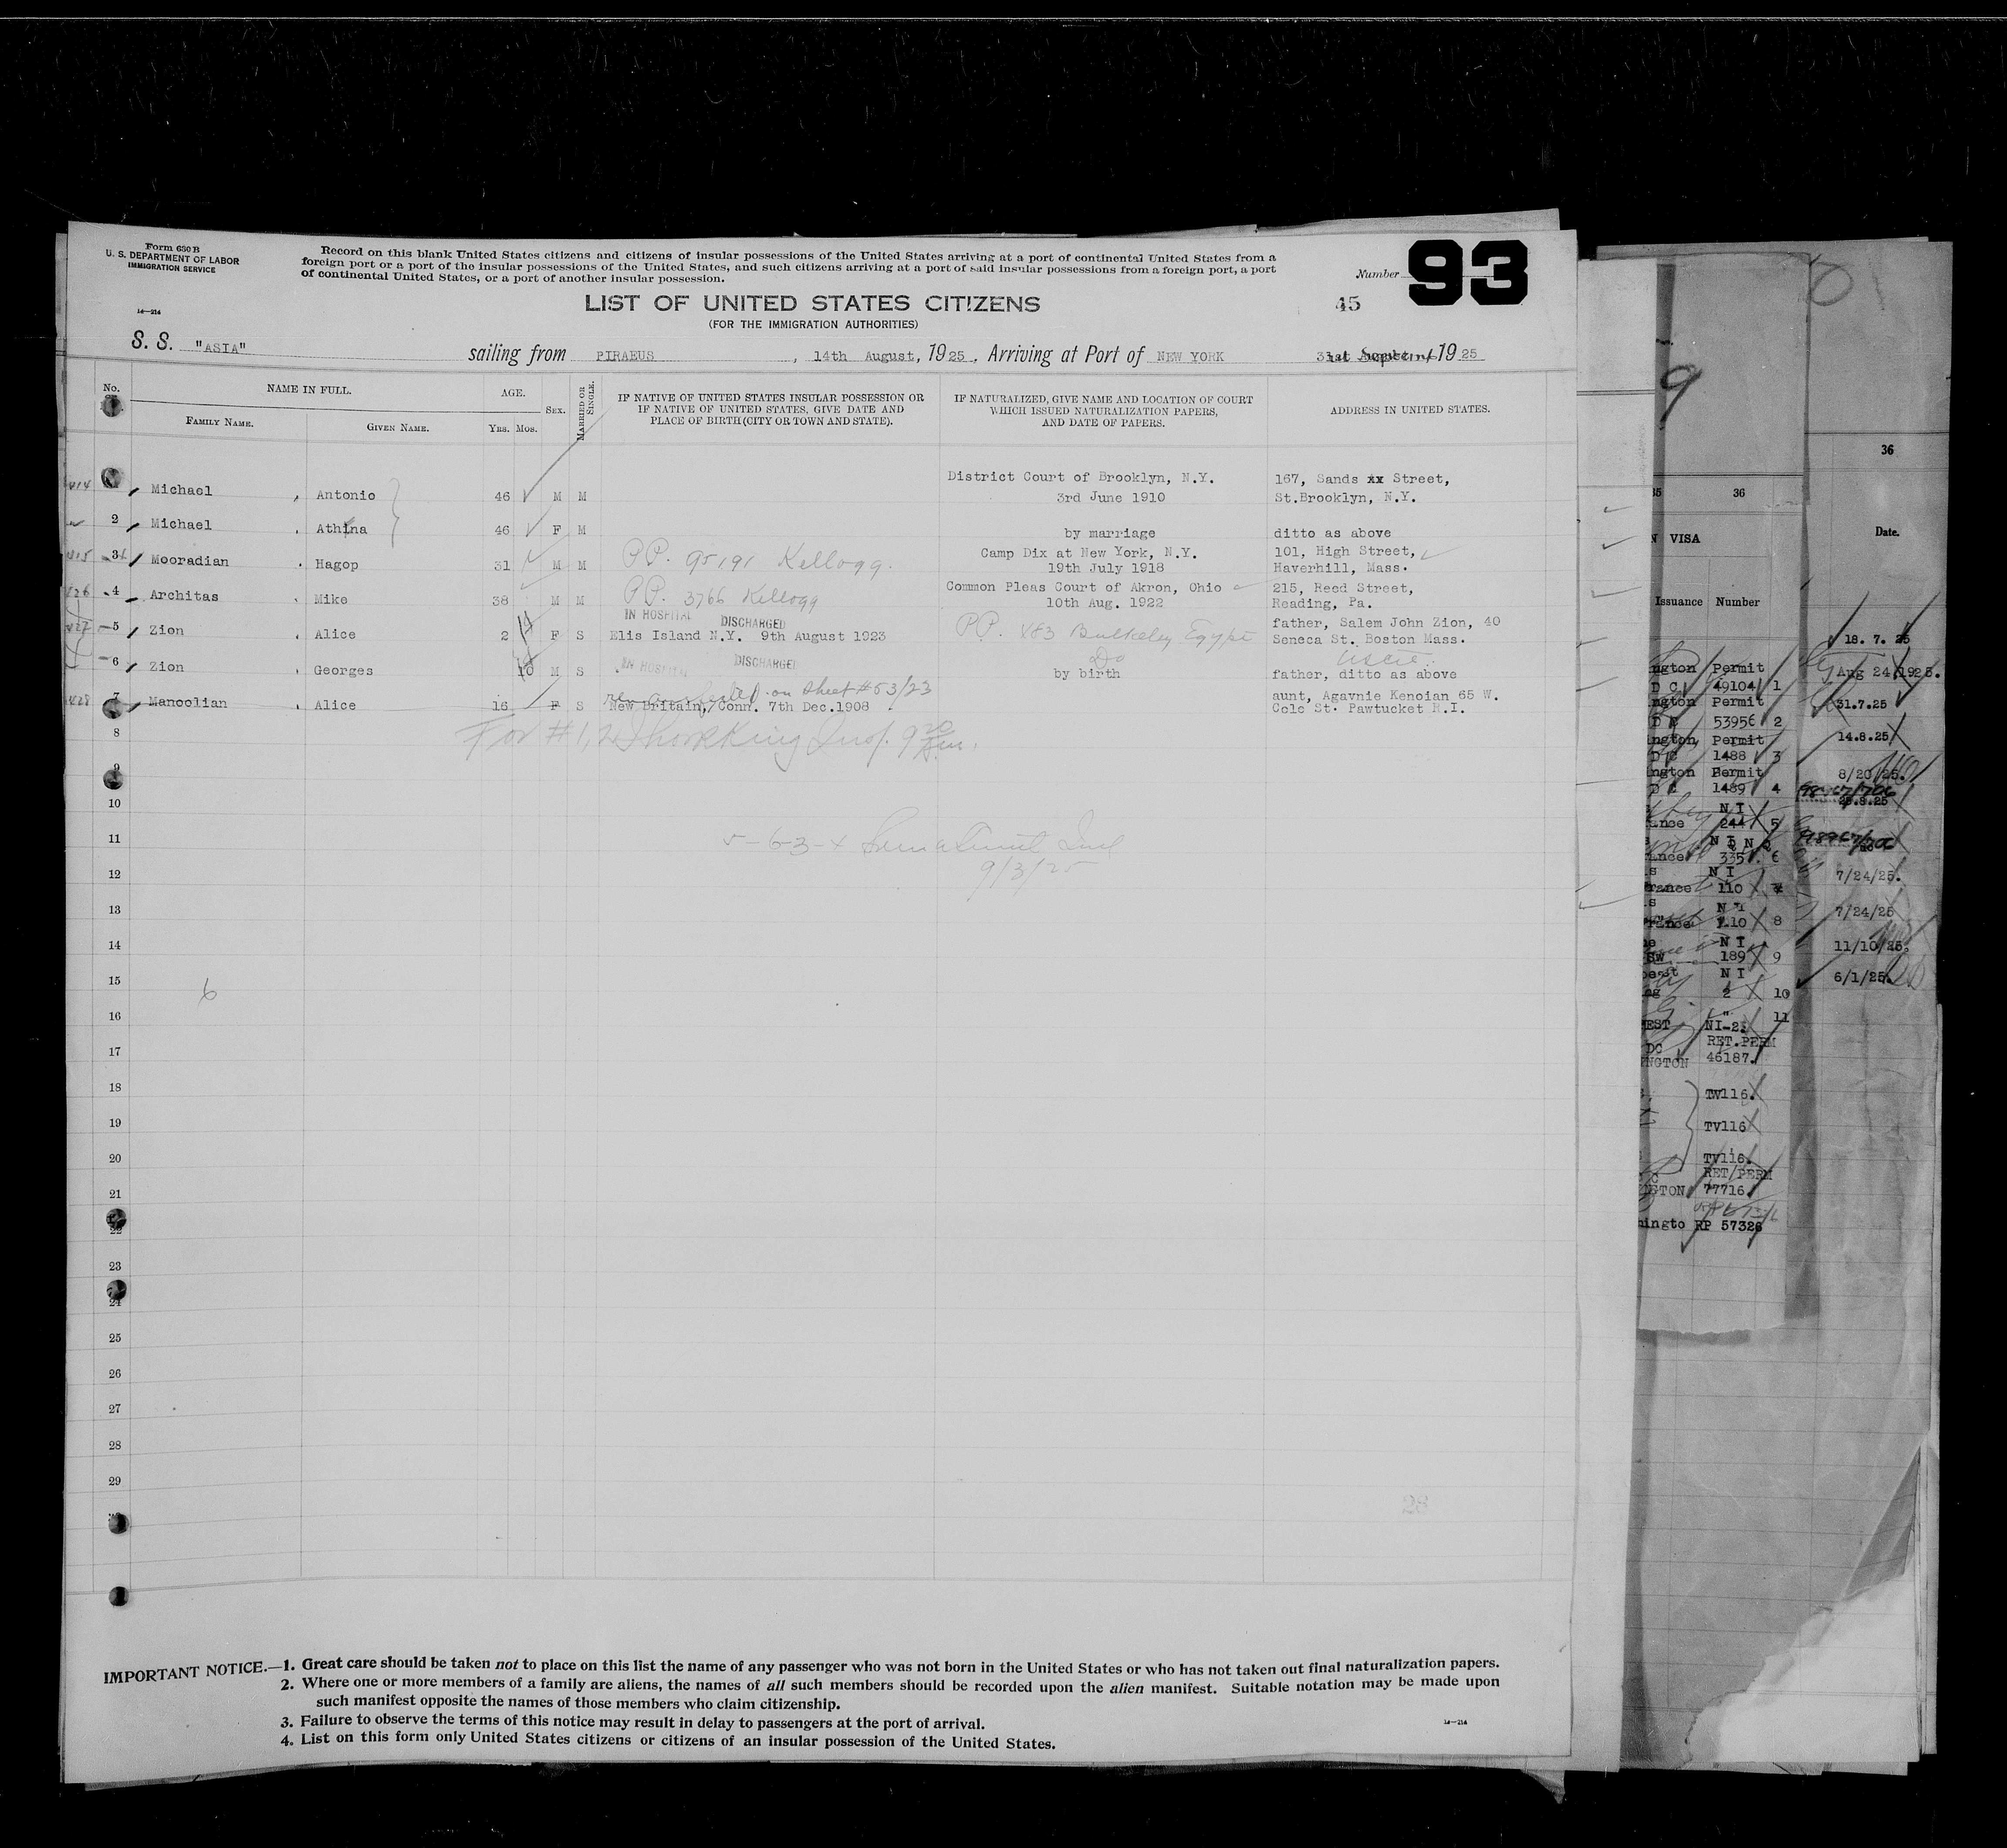 Form 630 B
U. S. DEPARTMENT OF LABOR
IMMIGRATION SERVICE
14—214
Record on this blank United States citizens and citizens of insular possessions of the United States arriving at a port of continental United States from a
foreign port or a port of the insular possessions of the United States, and such citizens arriving at a port of said insular possessions from a foreign port, a port
of continental United States, or a port of another insular possession.
Number 93
LIST OF UNITED STATES CITIZENS
45
(FOR THE IMMIGRATION AUTHORITIES)
S. S. "ASIA" sailing from PIRAEUS, 14th August, 1925, Arriving at Port of NEW YORK 1925
No. NAME IN FULL. AGE. SEX. MARRIED OR SINGLE.
FAMILY NAME. GIVEN NAME. YRS. MOS.
IF NATIVE OF UNITED STATES INSULAR POSSESSION OR
IF NATIVE OF UNITED STATES, GIVE DATE AND
PLACE OF BIRTH (CITY OR TOWN AND STATE).
IF NATURALIZED, GIVE NAME AND LOCATION OF COURT
WHICH ISSUED NATURALIZATION PAPERS,
AND DATE OF PAPERS.
ADDRESS IN UNITED STATES.
District Court of Brooklyn, N.Y. 167, Sands xx Street,
Michael, Antonio 46 M M 3rd June 1910 St.Brooklyn, N.Y.
2 Michael, Athina 46 F M by marriage ditto as above
Camp Dix at New York, N.Y. 101, High Street,
3 Mooradian, Hagop 31 M M PP. 95191 Kellogg. 19th July 1918 Haverhill, Mass.
Common Pleas Court of Akron, Ohio 215, Reed Street,
4 Architas, Mike 38 M M PP. 3766 Kellogg 10th Aug. 1922 Reading, Pa.
IN HOSPITAL DISCHARGED father, Salem John Zion, 40
5 Zion, Alice 2 F S Elis Island N.Y. 9th August 1923 PP. 483 Bulkeley Egypt Seneca St. Boston Mass.
IN HOSPITAL DISCHARGED Do
6 Zion, Georges 10 M S by birth father, ditto as above
on sheet #53/23 aunt, Agavnie Kenoian 65 W.
7 Manoolian, Alice 16 F S New Britain, Conn. 7th Dec.1908 Cole St. Pawtucket R.I.
8
For #1,2
9
10
11
9/3/25
12
13
14
15
6
16
17
18
19
20
21
22
23
24
25
26
27
28
29
28
IMPORTANT NOTICE.—1. Great care should be taken not to place on this list the name of any passenger who was not born in the United States or who has not taken out final naturalization papers.
2. Where one or more members of a family are aliens, the names of all such members should be recorded upon the alien manifest. Suitable notation may be made upon
such manifest opposite the names of those members who claim citizenship.
3. Failure to observe the terms of this notice may result in delay to passengers at the port of arrival.
14—214
4. List on this form only United States citizens or citizens of an insular possession of the United States.
9
36
35 36
VISA
Date.
Issuance Number
18. 7. 25
ington Permit
D C 49104 1 Aug 24.1925.
ington Permit
53956 2 31.7.25
ington Permit
1488 3 14.8.25
ington Permit
D C 1489 4 8/20/25.
N I
244 5
335 6
N I
rance 110 7/24/25.
110 8 7/24/25
N I
189 9 11/10/25.
N I
2 10 6/1/25.
11
EST NI-2
DC RET.PERM
INGTON 46187.
TV116.
TV116
TV116.
RET/PERM
NGTON 77716
hingto RP 57326